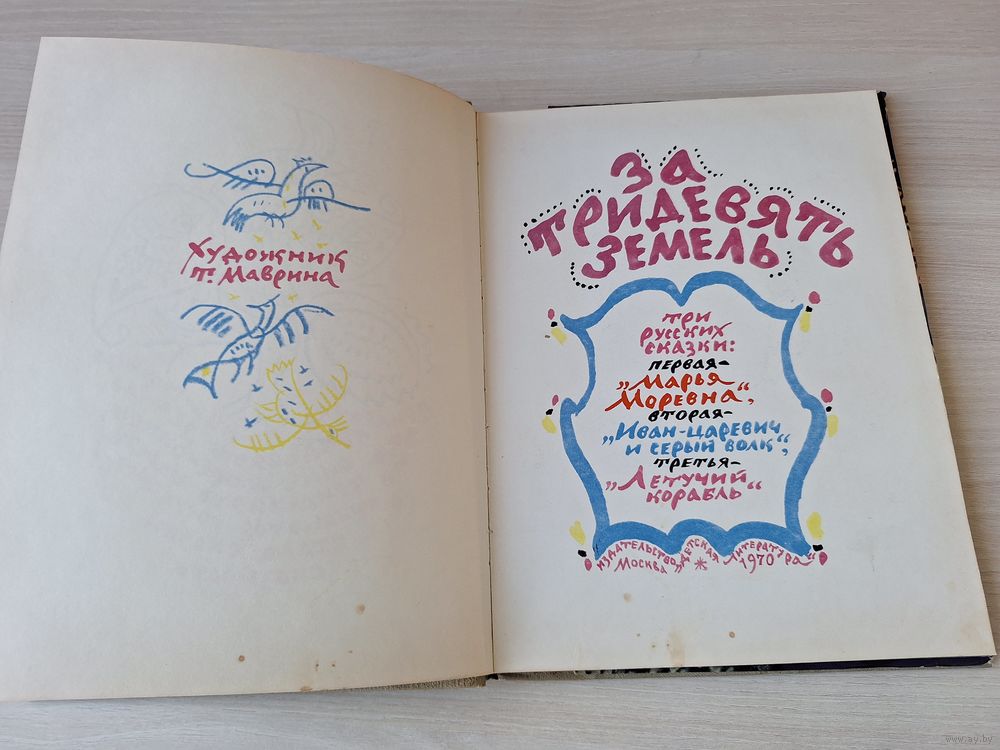 Художник
Т. Маврина
За
тридевять
земель
три
русских
сказки:
первая-
„Марья
Моревна“,
вторая-
„Иван-царевич
и серый волк“,
третья-
„Летучий
корабль“
издательство „детская литература“
Москва * 1970
www.ay.by